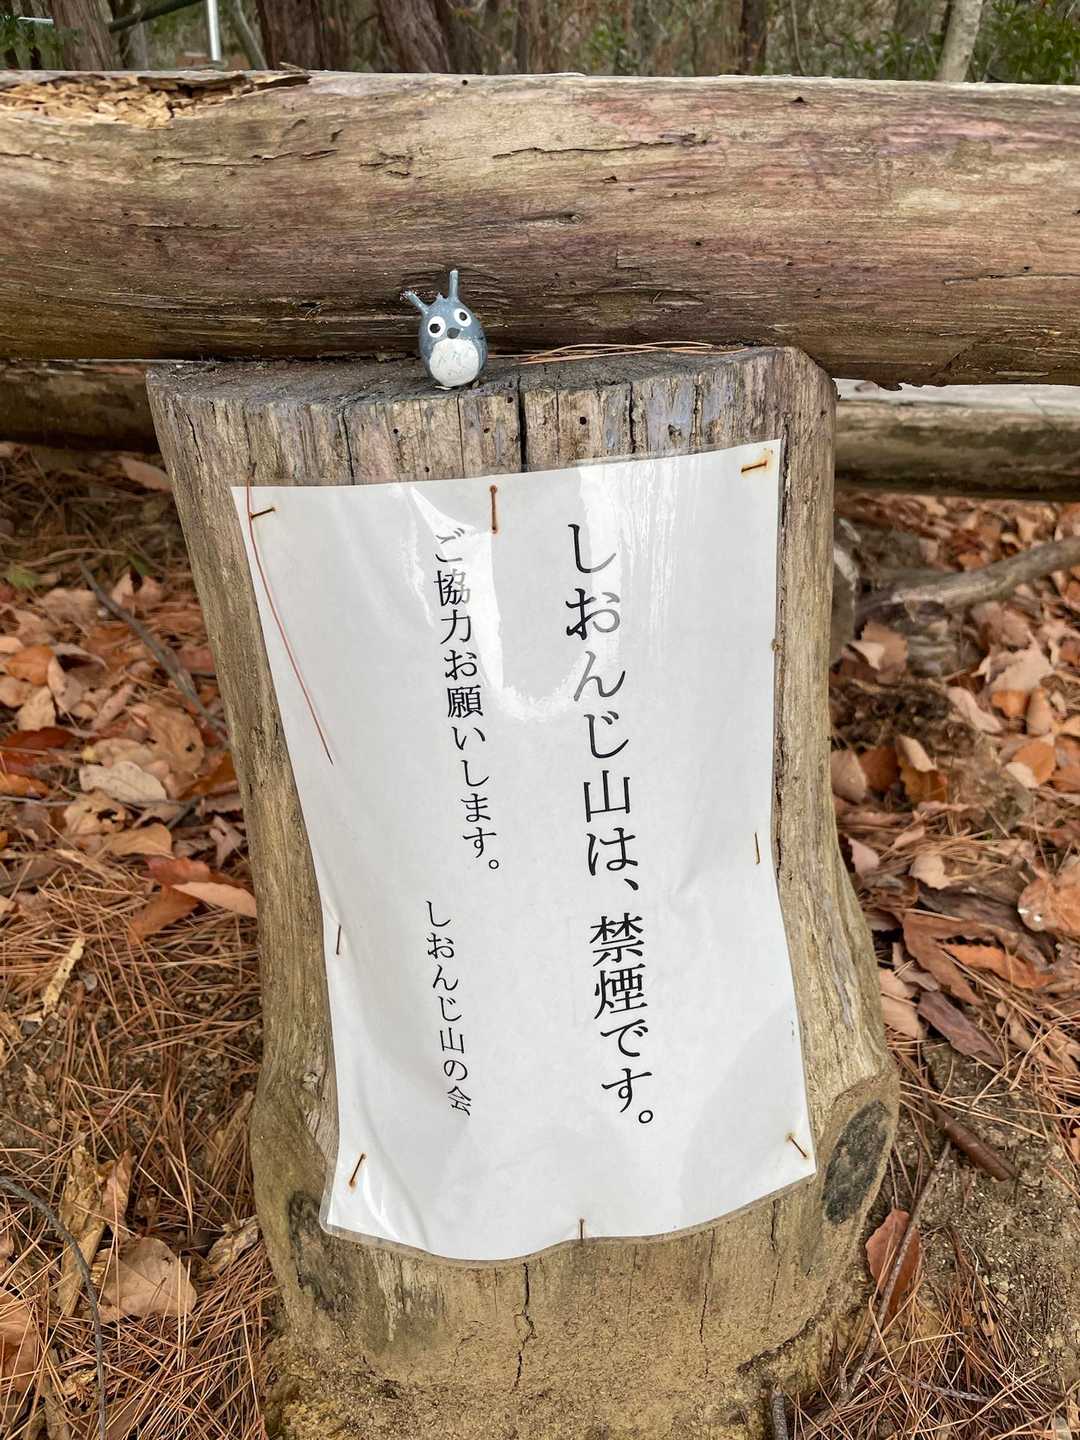 しおんじ山は、禁煙です。
ご協力お願いします。
しおんじ山の会